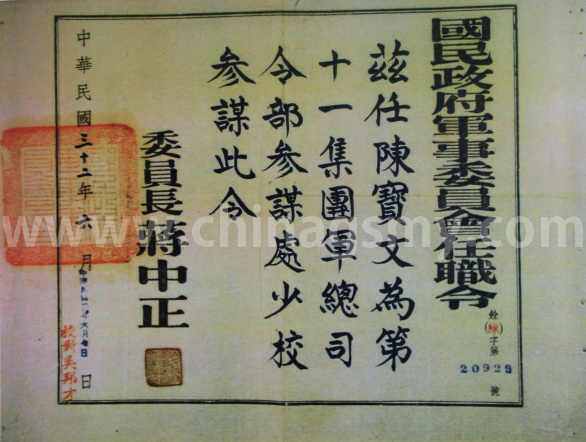 國民政府軍事委員會任職令
銓(續)字第20929號
茲任陳寶文為第
十一集團軍總司
令部參謀處少校
參謀此令
委員長蔣中正
中華民國三十二年六月 日
校對吳邦才